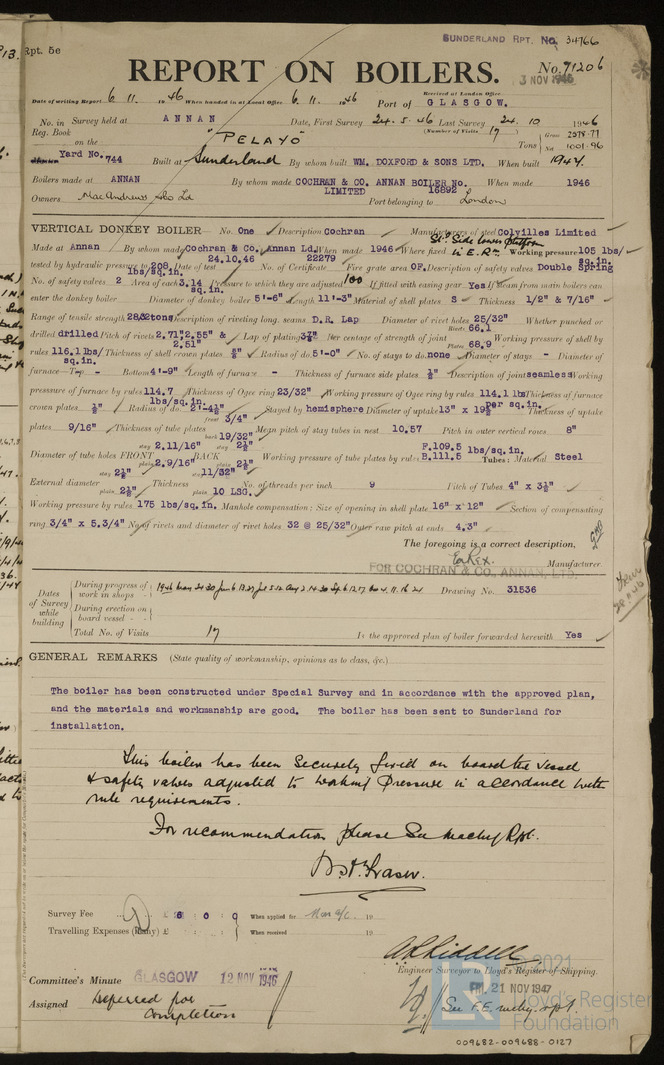 Rpt. 5c
SUNDERLAND RPT. No. 34766
REPORT ON BOILERS.
No. 71206
3 NOV 1946
Received at London Office
Date of writing Report 6 11. 1946 When handed in at Local Office 6. 11. 1946 Port of GLASGOW.
No. in Survey held at ANNAN Date, First Survey 24. 5. 46 Last Survey 24. 10 1946
Reg. Book (Number of Visits 17) Gross 2578.77
on the "PELAYO" Tons Net 1001.96
Yard No. 744 Built at Sunderland By whom built WM. DOXFORD & SONS LTD. When built 1947.
Boilers made at ANNAN By whom made COCHRAN & CO. ANNAN LIMITED BOILER No. 16892 When made 1946
Owners MacAndrews & Co Ld Port belonging to London
VERTICAL DONKEY BOILER — No. One Description Cochran Manufacturers of steel Colvilles Limited
Made at Annan By whom made Cochran & Co. Annan Ld. When made 1946 Where fixed St. Side lower platform in E. Rm Working pressure 105 lbs/sq.in.
tested by hydraulic pressure to 208 lbs/sq.in. Date of test 24.10.46 No. of Certificate 22279 Fire grate area OF. Description of safety valves Double Spring
No. of safety valves 2 Area of each 3.14 Pressure to which they are adjusted 100 If fitted with easing gear Yes If steam from main boilers can
enter the donkey boiler Diameter of donkey boiler 5'-6" Length 11'-3" Material of shell plates S Thickness 1/2" & 7/16"
Range of tensile strength 28/32tons Description of riveting long. seams D.R. Lap Diameter of rivet holes 25/32" Whether punched or
drilled drilled Pitch of rivets 2.71" 2.55" & 2.51" Lap of plating Per centage of strength of joint Rivets 66.1 Plate 68.9 Working pressure of shell by
rules 116.1 lbs/sq.in. Thickness of shell crown plates Radius of do. 5'-0" No. of stays to do. none Diameter of stays - Diameter of
furnace—Top - Bottom 4'-9" Length of furnace - Thickness of furnace side plates ½" Description of joint seamless Working
pressure of furnace by rules 114.7 lbs/sq.in. Thickness of Ogee ring 23/32" Working pressure of Ogee ring by rules 114.1 lbs per sq.in. Thickness of furnace
crown plates ½" Radius of do. 2'-4½" Stayed by hemisphere Diameter of uptake 13" x Thickness of uptake
plates 9/16" Thickness of tube plates front 3/4" back 19/32" Mean pitch of stay tubes in nest 10.57 Pitch in outer vertical rows 8"
Diameter of tube holes FRONT stay 2.11/16" plain 2.9/16" BACK stay 2½" plain 2½" Working pressure of tube plates by rules F.109.5 B.111.5 lbs/sq.in. Tubes: Material Steel
External diameter stay 2½" plain 2½" Thickness stay 11/32" plain 10 LSG. No. of threads per inch 9 Pitch of Tubes 4" x 3½"
Working pressure by rules 175 lbs/sq.in. Manhole compensation: Size of opening in shell plate 16" x 12" Section of compensating
ring 3/4" x 5.3/4" No. of rivets and diameter of rivet holes 32 @ 25/32" Outer row pitch at ends 4.3"
The foregoing is a correct description,
FOR COCHRAN & CO., ANNAN, LTD. Manufacturer
Dates of Survey while building
During progress of work in shops - -
During erection on board vessel - - -
Total No. of Visits 17
Drawing No. 31536
Is the approved plan of boiler forwarded herewith Yes
GENERAL REMARKS (State quality of workmanship, opinions as to class, &c.)
The boiler has been constructed under Special Survey and in accordance with the approved plan,
and the materials and workmanship are good. The boiler has been sent to Sunderland for
installation.
This boiler has been securely fixed on board the vessel
& safety valves adjusted to working pressure in accordance with
rule requirements.
For recommendation please see machy Rpt.
Survey Fee £ 6 0 0 When applied for 19
Travelling Expenses (if any) £ When received 19
Engineer Surveyor to Lloyd's Register of Shipping.
Committee's Minute GLASGOW 12 NOV 1946
FRI. 21 NOV 1947
Assigned Deferred for completion
See F.E. machy. rpt.
© 2021
Lloyd's Register
Foundation
009682-009688-0127